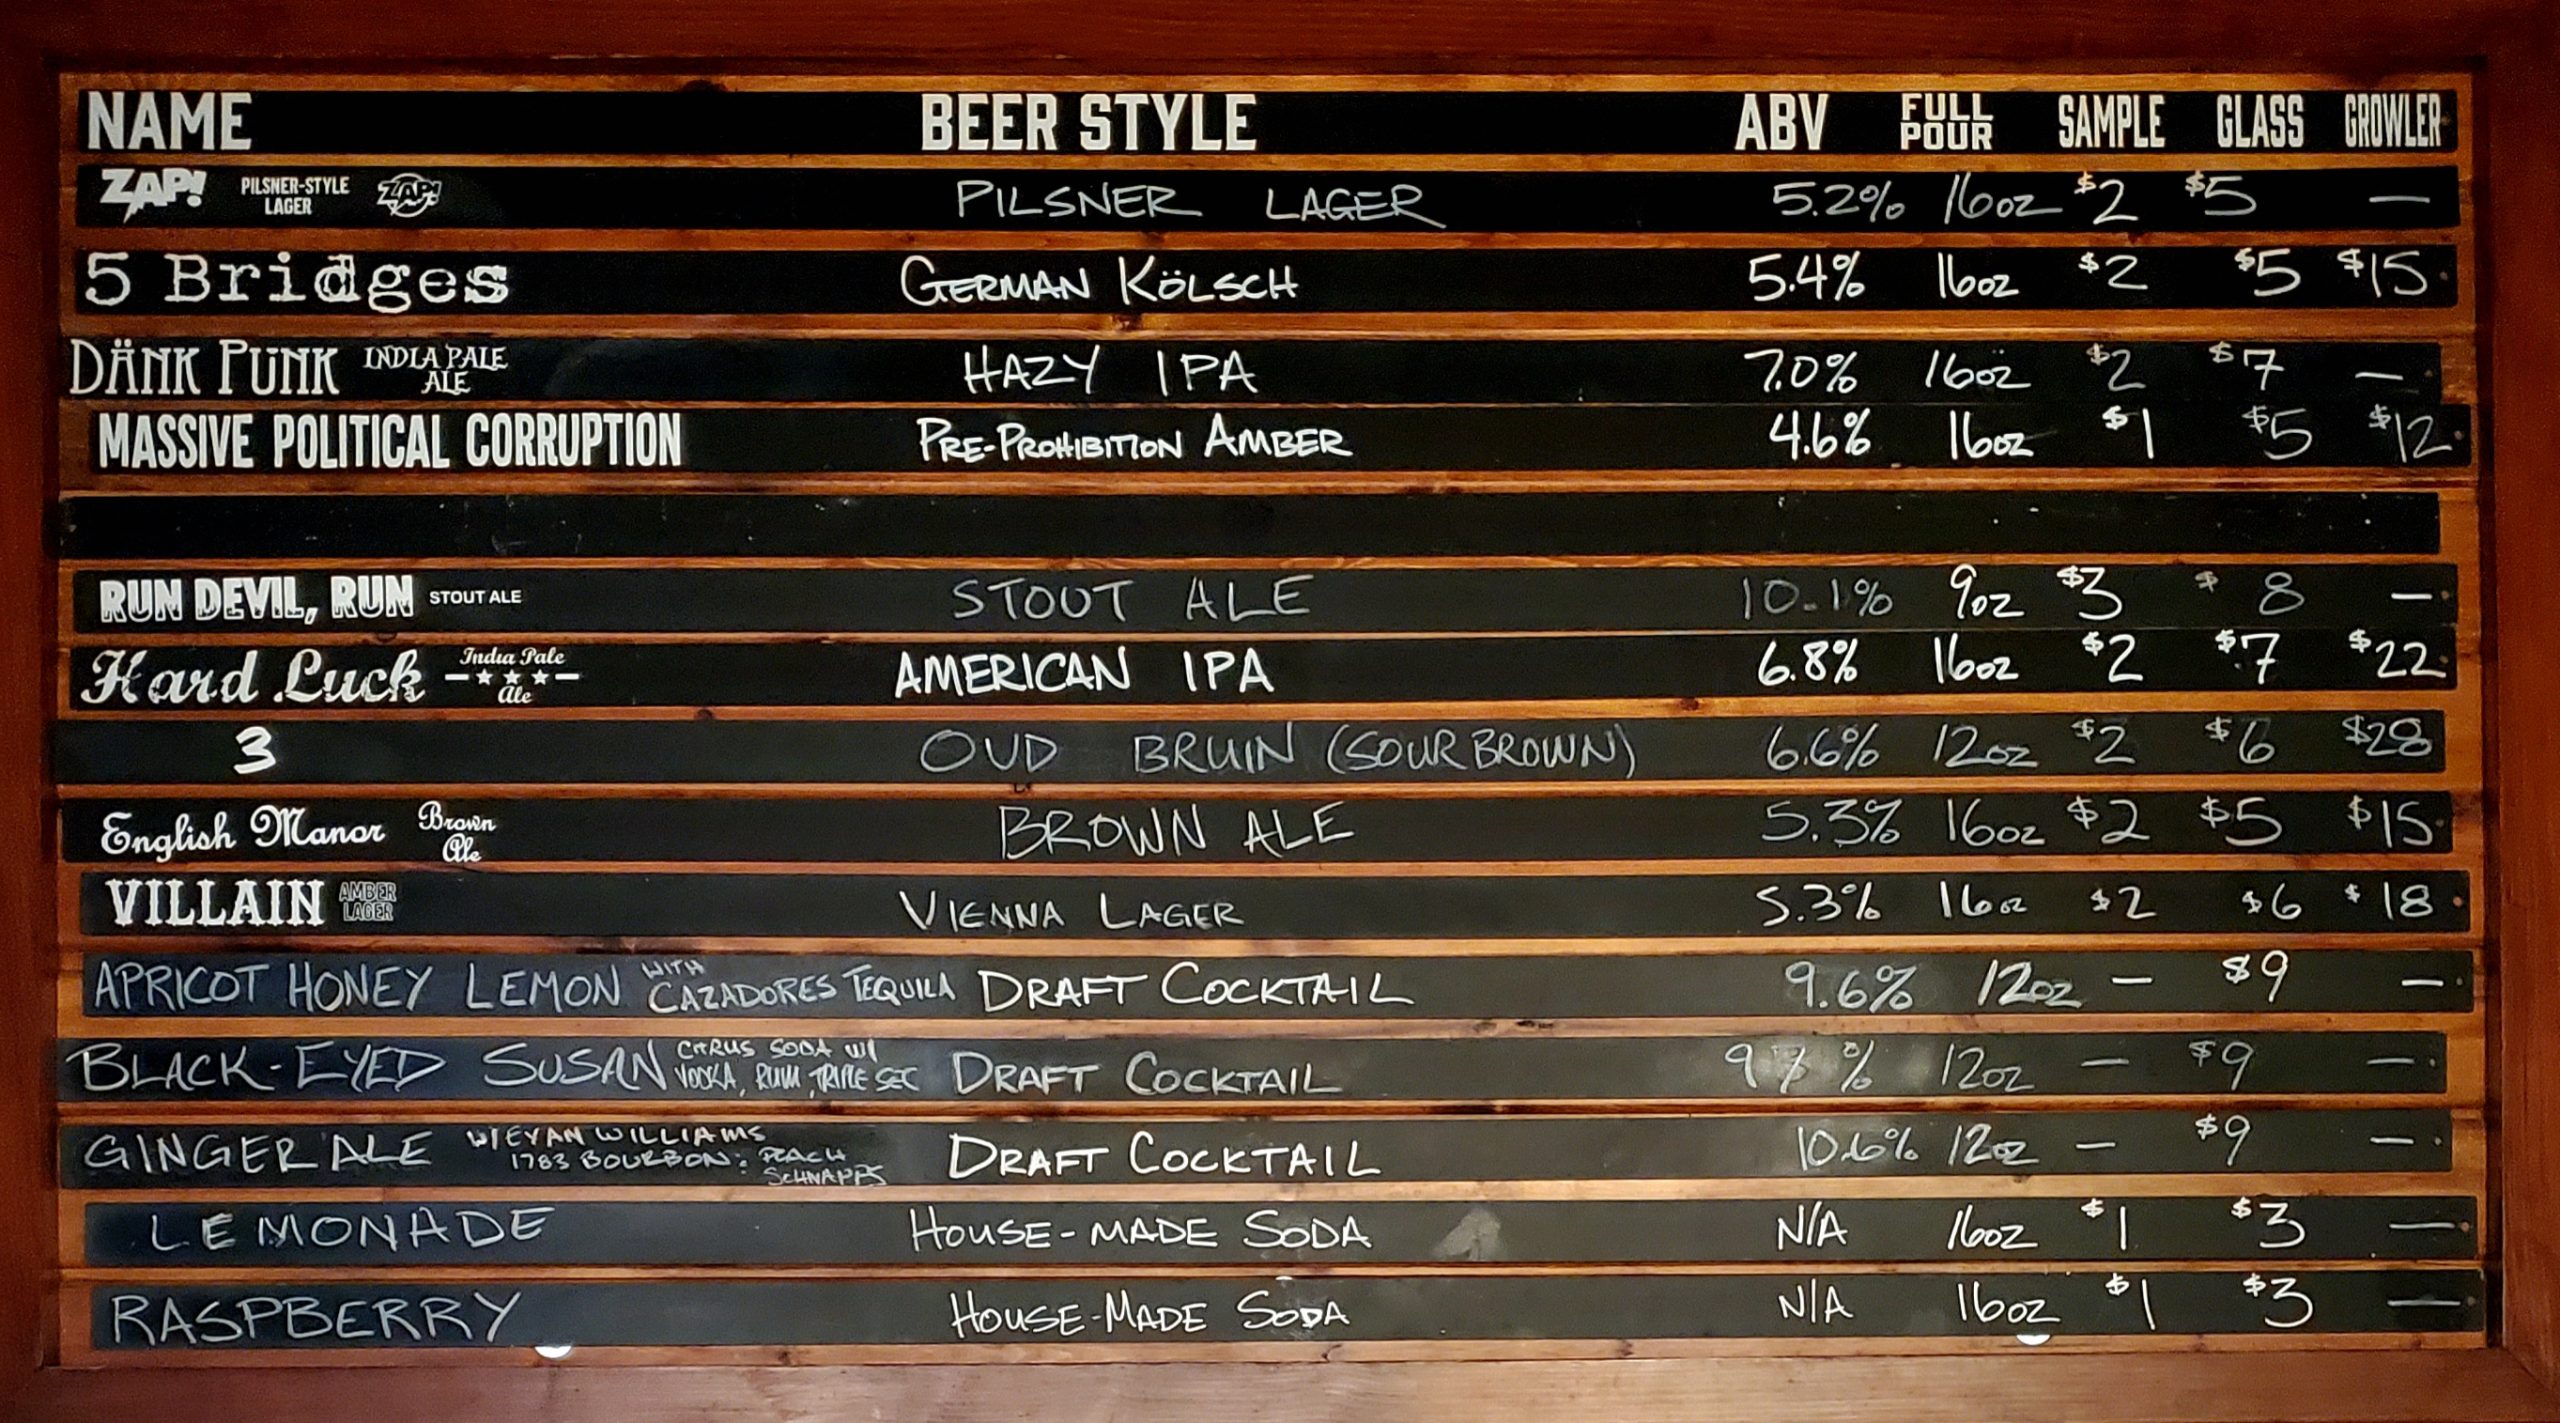 NAME BEER STYLE ABV FULL POUR SAMPLE GLASS GROWLER
ZAP! PILSNER-STYLE LAGER ZAP! PILSNER LAGER 5.2% 16oz $2 $5 —
5 Bridges GERMAN KÖLSCH 5.4% 16oz $2 $5 $15
DÄNK PÜNK INDIA PALE ALE HAZY IPA 7.0% 16oz $2 $7 —
MASSIVE POLITICAL CORRUPTION PRE-PROHIBITION AMBER 4.6% 16oz $1 $5 $12
RUN DEVIL, RUN STOUT ALE STOUT ALE 10.1% 9oz $3 $8 —
Hard Luck India Pale Ale AMERICAN IPA 6.8% 16oz $2 $7 $22
3 OUD BRUIN (SOUR BROWN) 6.6% 12oz $2 $6 $28
English Manor Brown Ale BROWN ALE 5.3% 16oz $2 $5 $15
VILLAIN AMBER LAGER VIENNA LAGER 5.3% 16oz $2 $6 $18
APRICOT HONEY LEMON WITH CAZADORES TEQUILA DRAFT COCKTAIL 9.6% 12oz — $9 —
BLACK-EYED SUSAN CITRUS SODA W/ VODKA, RUM, TRIPLE SEC DRAFT COCKTAIL 12oz — $9 —
GINGER ALE W/ EVAN WILLIAMS 1783 BOURBON: PEACH SCHNAPPS DRAFT COCKTAIL 10.6% 12oz — $9 —
LEMONADE HOUSE-MADE SODA N/A 16oz $1 $3 —
RASPBERRY HOUSE-MADE SODA N/A 16oz $1 $3 —